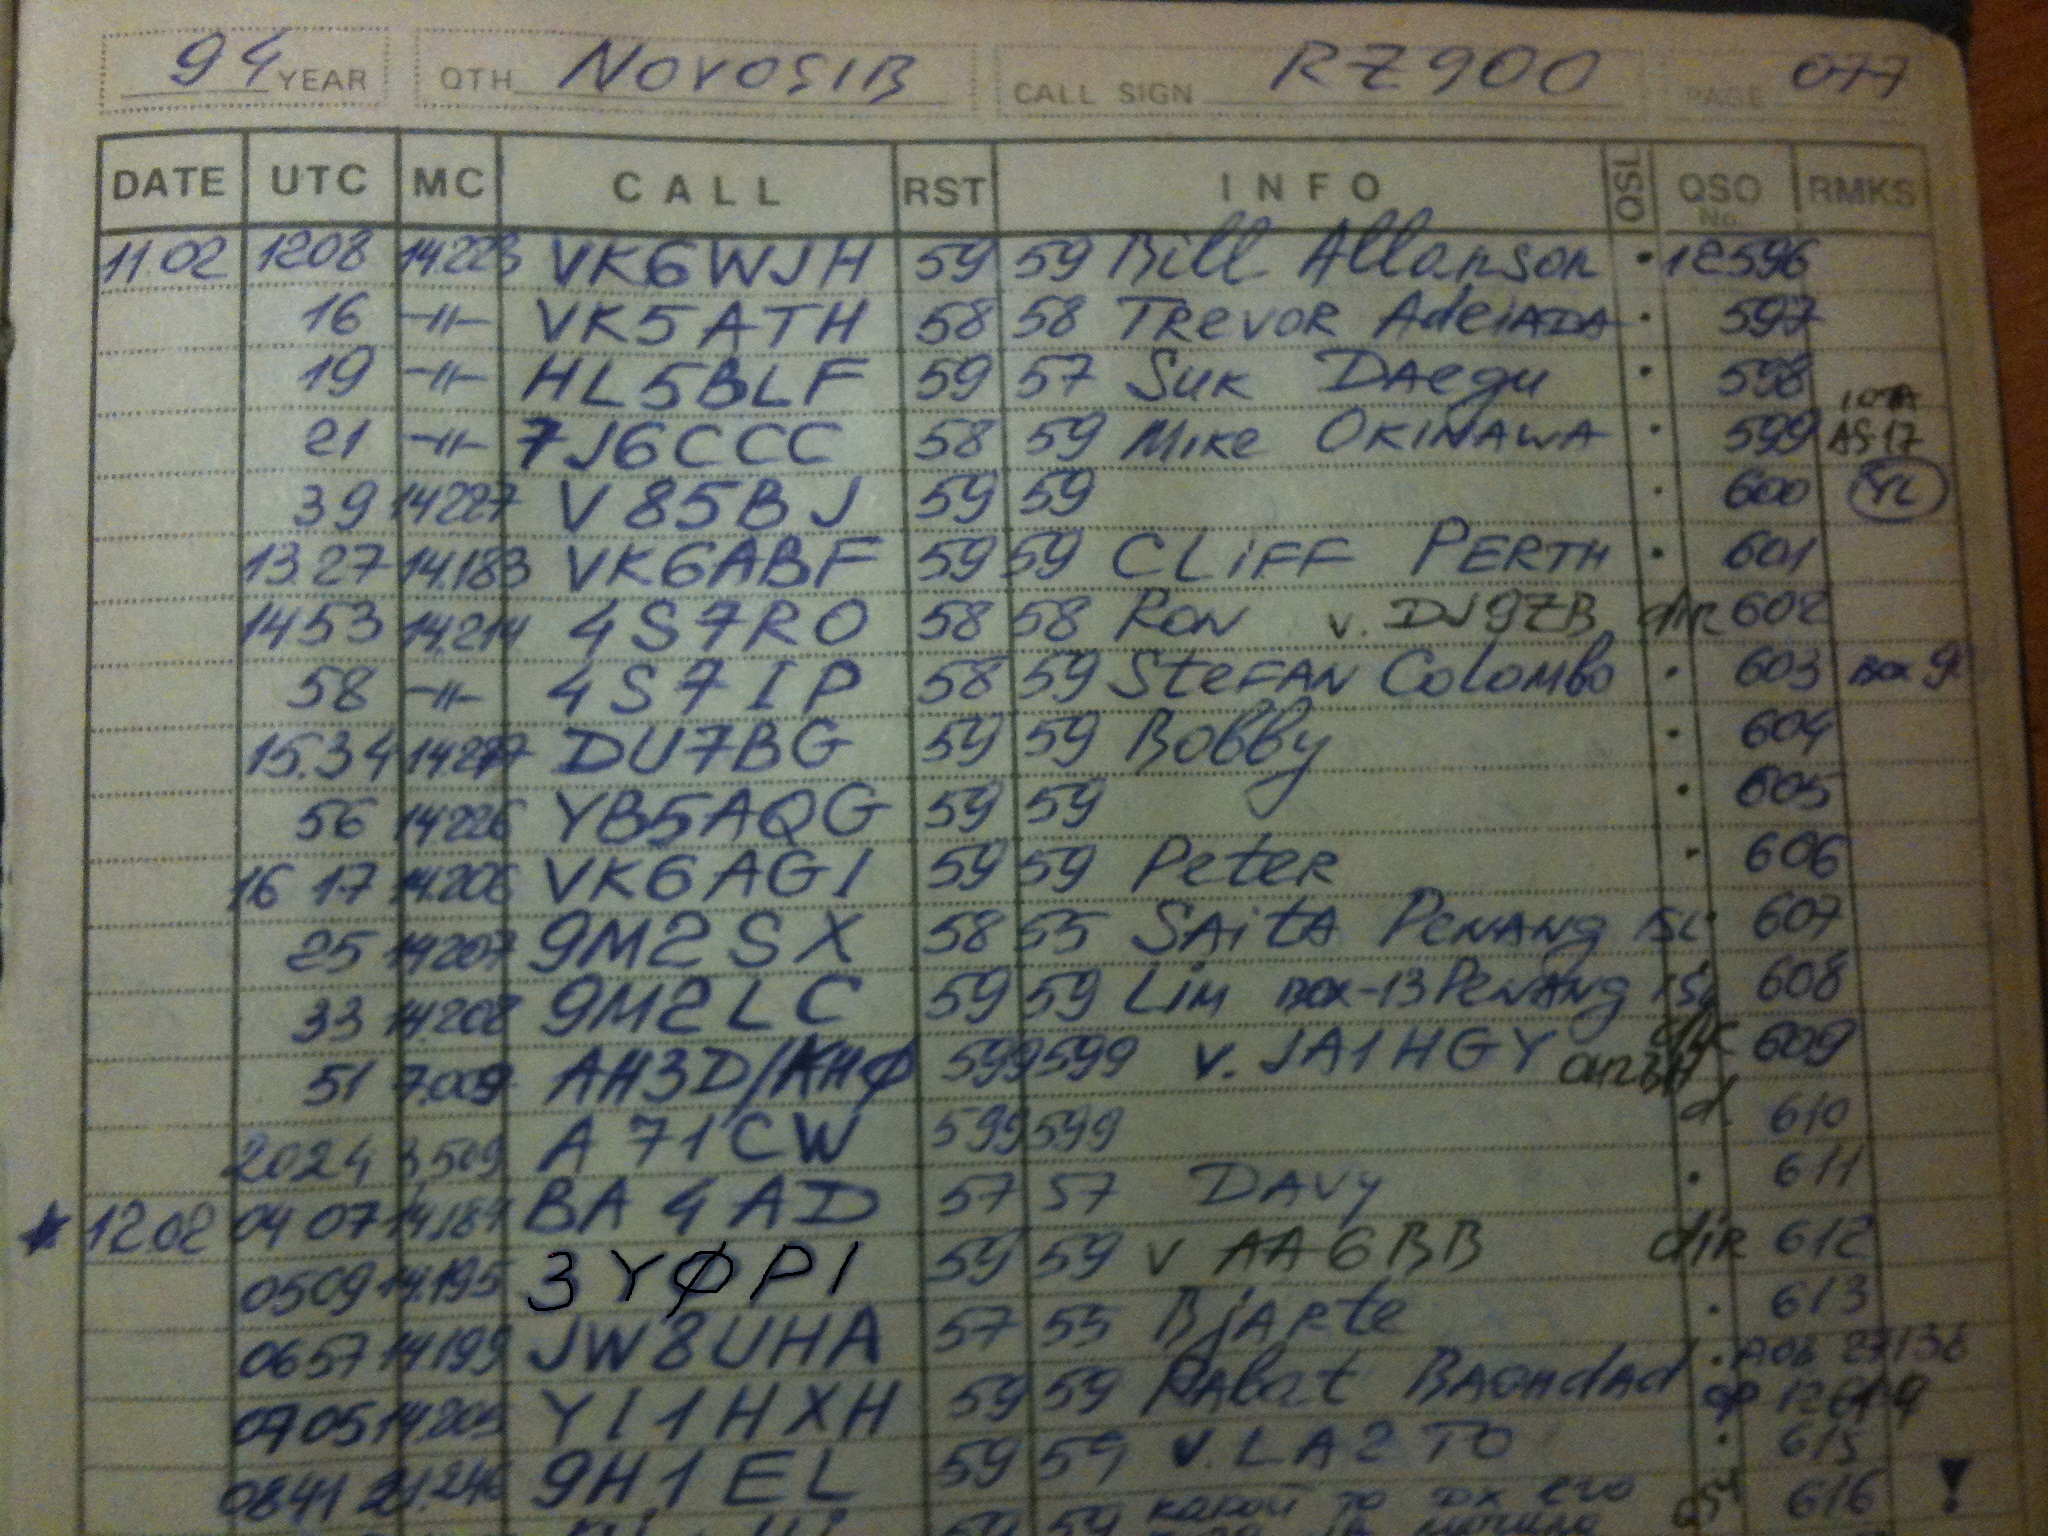 94 YEAR QTH NOVOSIB CALL SIGN RZ9OO PAGE 077
DATE UTC MC CALL RST INFO QSL QSO No. RMKS
11.02 1208 14.223 VK6WJH 59 59 Bill Allanson • 12596
16 -11- VK5ATH 58 58 TREVOR • 597
19 -11- HL5BLF 59 57 SUK DAegu • 598
IOTA
21 -11- 7J6CCC 58 59 MIKE OKINAWA • 599 AS-17
39 14227 V85BJ 59 59 • 600 YL
13.27 14.183 VK6ABF 59 59 CLIFF PERTH • 601
1453 14.214 4S7RO 58 58 RON v. DJ9ZB dir 602
58 -11- 4S7IP 58 59 STEFAN Colombo • 603 Box 9
15.34 DU7BG 59 59 Bobby • 604
56 14226 YB5AQG 59 59 • 605
16 17 14.206 VK6AGI 59 59 Peter • 606
25 14207 9M2SX 58 55 SAITA PENANG ISL • 607
33 14.208 9M2LC 59 59 LIM BOX-13 PENANG ISL 608
51 7.009 AH3D/KHØ 599 599 v. JA1HGY 609
OH2BH
2024 3,509 A71CW 599 599 d. 610
* 12.02 04 07 14.184 BA4AD 57 57 DAVY • 611
0509 14.195 3YØPI 59 59 v AA6BB dir 612
0657 14.199 JW8UHA 57 55 BJARTE • 613
0705 14.205 YI1HXH 59 59 BAGHDAD •
0841 9H1EL 59 59 v. LA2TO • 615
59 59 616 !